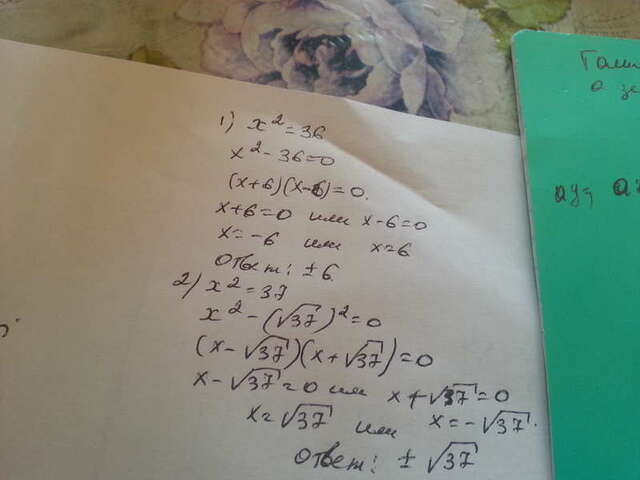 1) x² = 36
x² - 36 = 0
(x+6)(x-6) = 0.
x+6=0 или x-6=0
x=-6 или x=6
Ответ: ±6.
2) x² = 37
x² - (√37)² = 0
(x-√37)(x+√37)=0
x-√37=0 или x+√37=0
x=√37 или x=-√37.
Ответ: ±√37